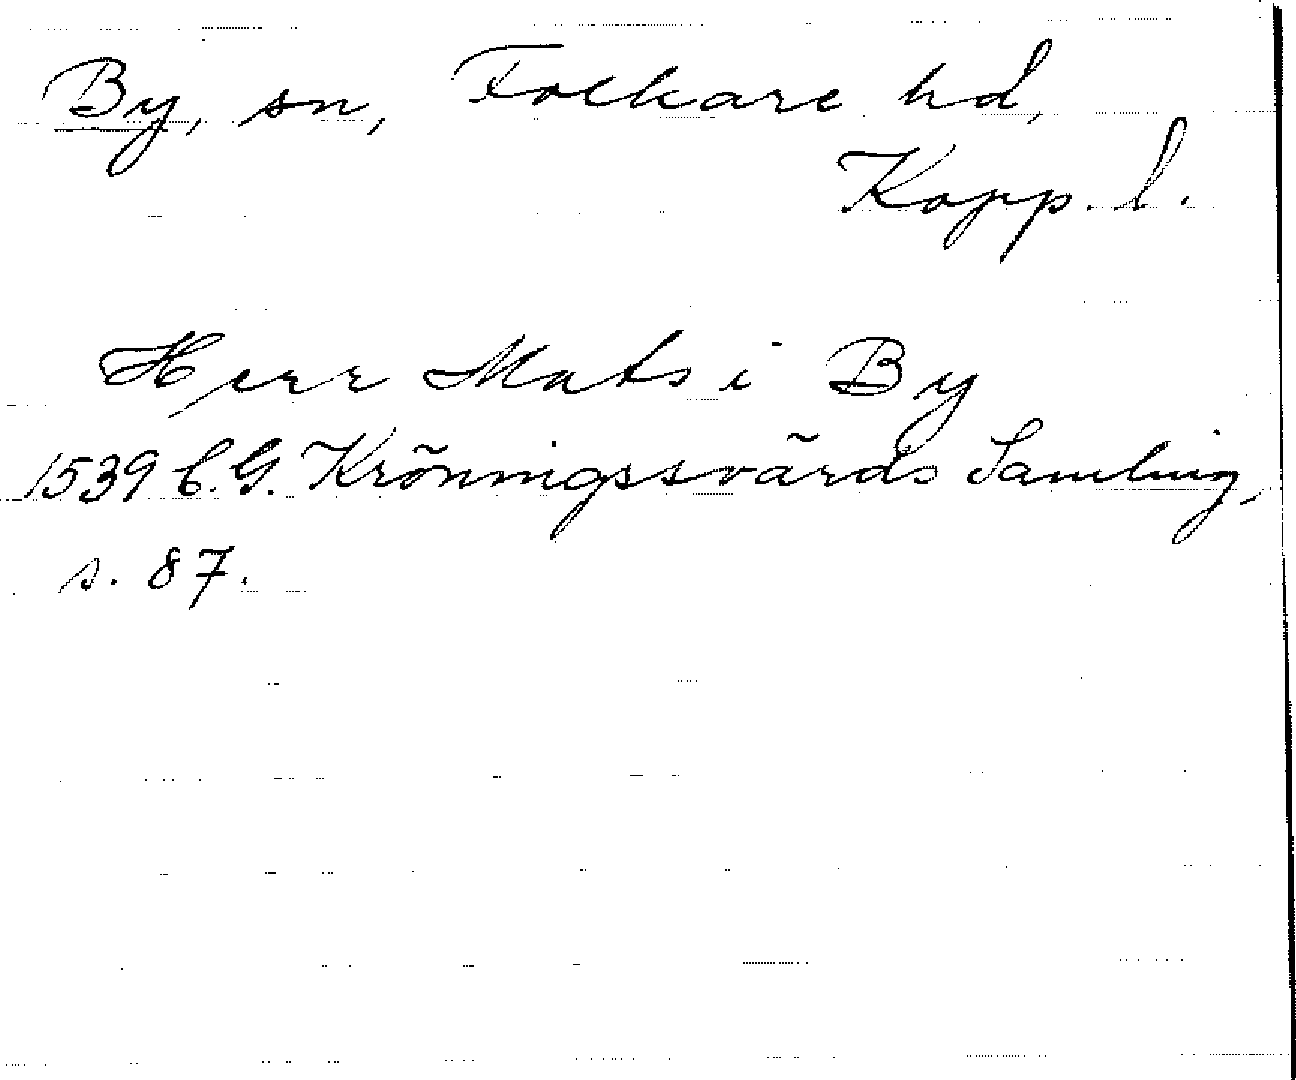 By, sn, Folkare hd,
Kopp. l.
Herr Mats i By
1539 C.G. Kröningssvärds Samling,
s. 87.